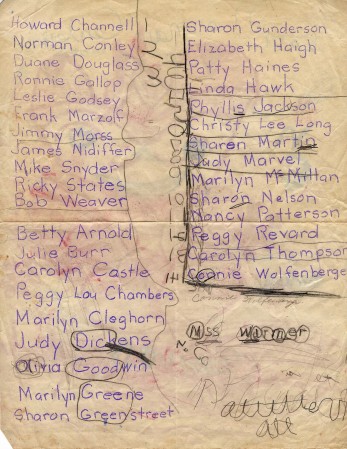 Howard Channell
Norman Conley
Duane Douglass
Ronnie Gallop
Leslie Godsey
Frank Marzolf
Jimmy Morss
James Nidiffer
Mike Snyder
Ricky States
Bob Weaver
Betty Arnold
Julie Burr
Carolyn Castle
Peggy Lou Chambers
Marilyn Cleghorn
Judy Dickens
Olivia Goodwin
Marilyn Greene
Sharon Greenstreet
Sharon Gunderson
Elizabeth Haigh
Patty Haines
Linda Hawk
Phyllis Jackson
Christy Lee Long
Sharen Martin
Judy Marvel
Marilyn McMillan
Sharon Nelson
Nancy Patterson
Peggy Revard
Carolyn Thompson
Connie Wolfenberger
Miss Warner